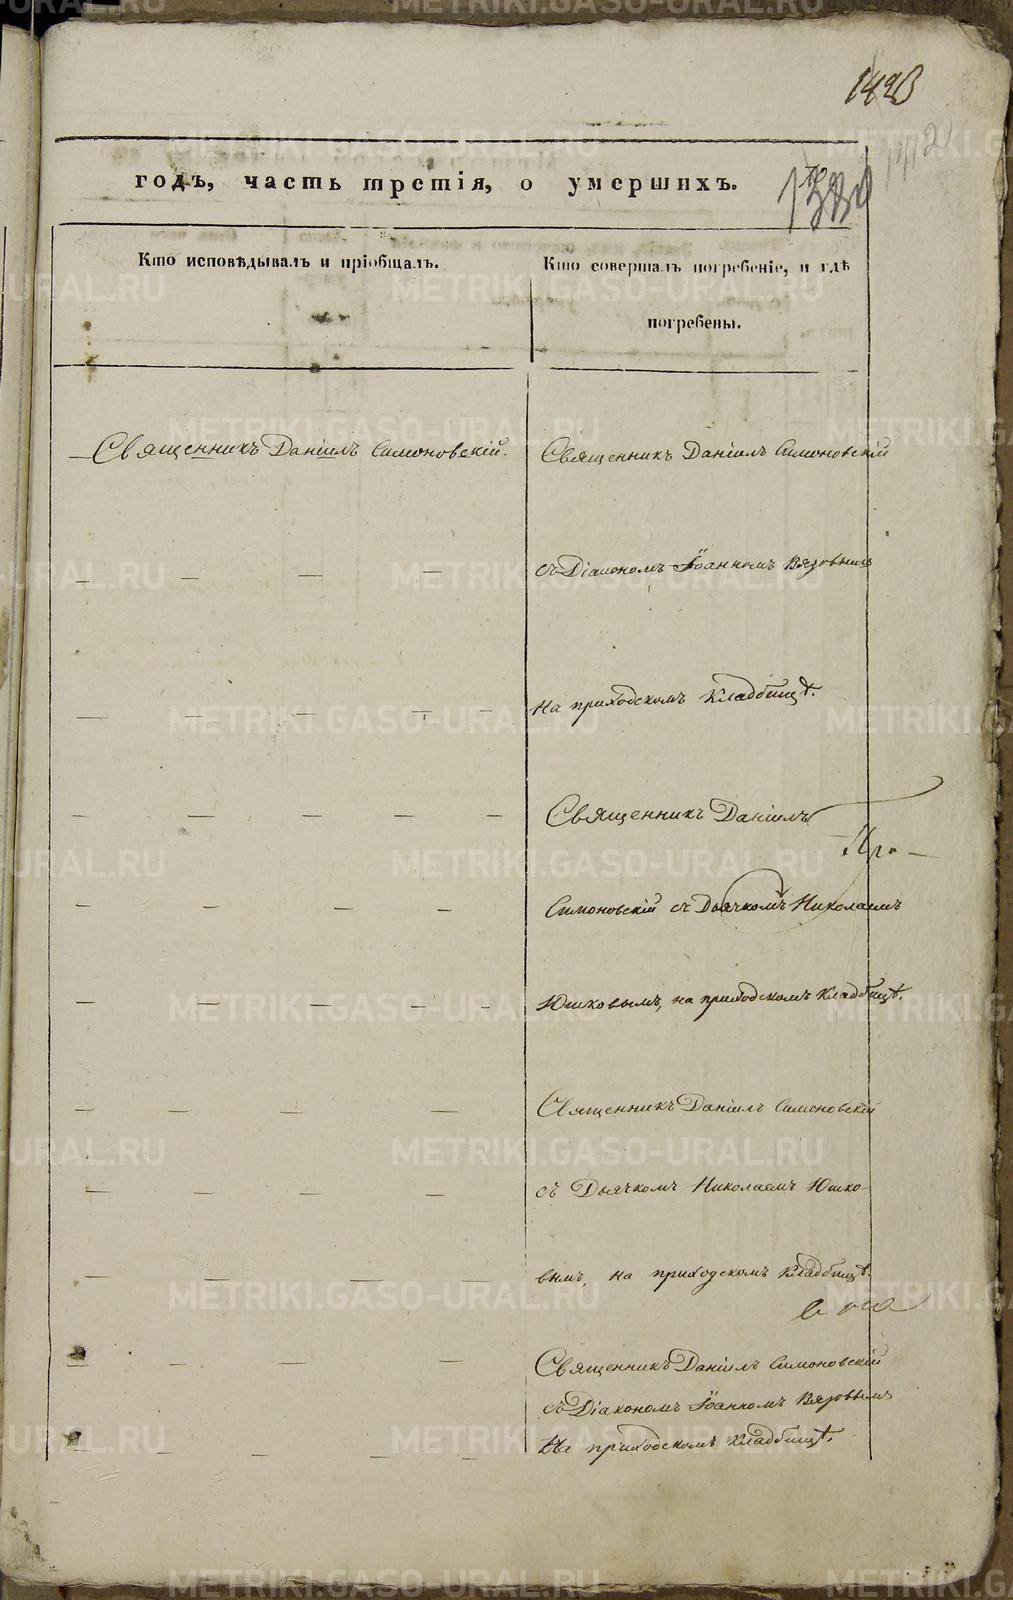 годъ, часть третія, о умершихъ.
Кто исповѣдывалъ и пріобщалъ.
Кто совершалъ погребеніе, и гдѣ
погребены.
Священникъ Даніилъ Симоновскій.
Священникъ Даніилъ Симоновскій
съ Діакономъ Іоанномъ Вязовымъ
на приходскомъ кладбищѣ.
Священникъ Даніилъ
Симоновскій съ Дьячкомъ Николаемъ
Юшковымъ, на приходскомъ кладбищѣ.
Священникъ Даніилъ Симоновскій
съ Дьячкомъ Николаемъ Юшко-
вымъ, на приходскомъ кладбищѣ.
Священникъ Даніилъ Симоновскій
съ Діакономъ Іоанномъ Вязовымъ
на приходскомъ кладбищѣ.
METRIKI.GASO-URAL.RU